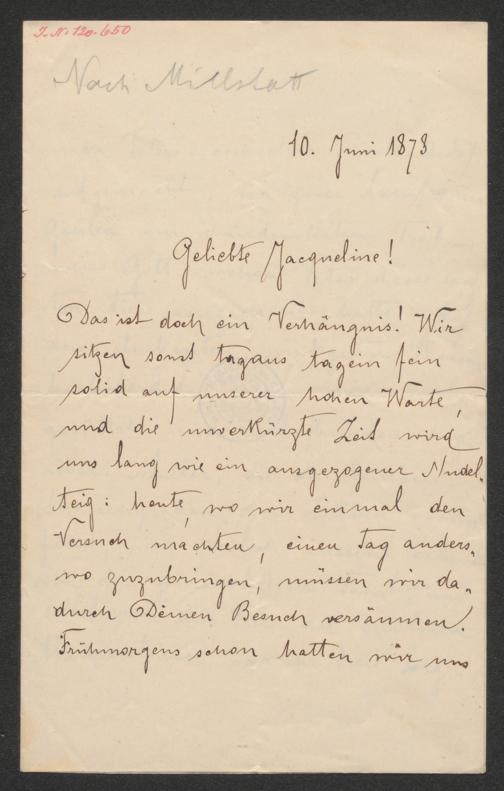 J.N. 120.650
Nach Millstatt
10. Juni 1878
Geliebte Jacqueline!
Das ist doch ein Verhängnis! Wir
sitzen sonst tagaus tagein fein
solid auf unserer hohen Warte,
und die unverkürzte Zeit wird
uns lang wie ein ausgezogener Nudel-
teig: heute, wo wir einmal den
Versuch machten, einen Tag anders-
wo zuzubringen, müssen wir da-
durch Deinen Besuch versäumen!
Frühmorgens schon hatten wir uns